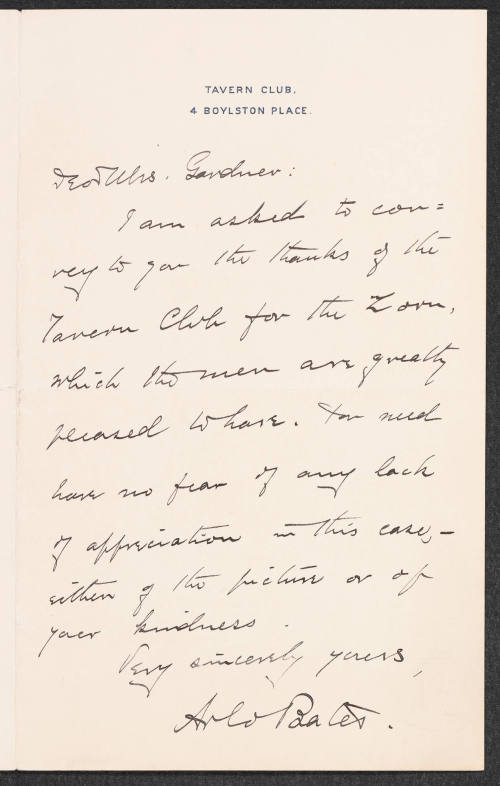 TAVERN CLUB,
4 BOYLSTON PLACE.
Dear Mrs. Gardner:
I am asked to con=
vey to you the thanks of the
Tavern Club for the Zorn,
which the men are greatly
pleased to have. You need
have no fear of any lack
of appreciation in this case,—
either of the picture or of
your kindness.
Very sincerely yours,
Arlo Bates.